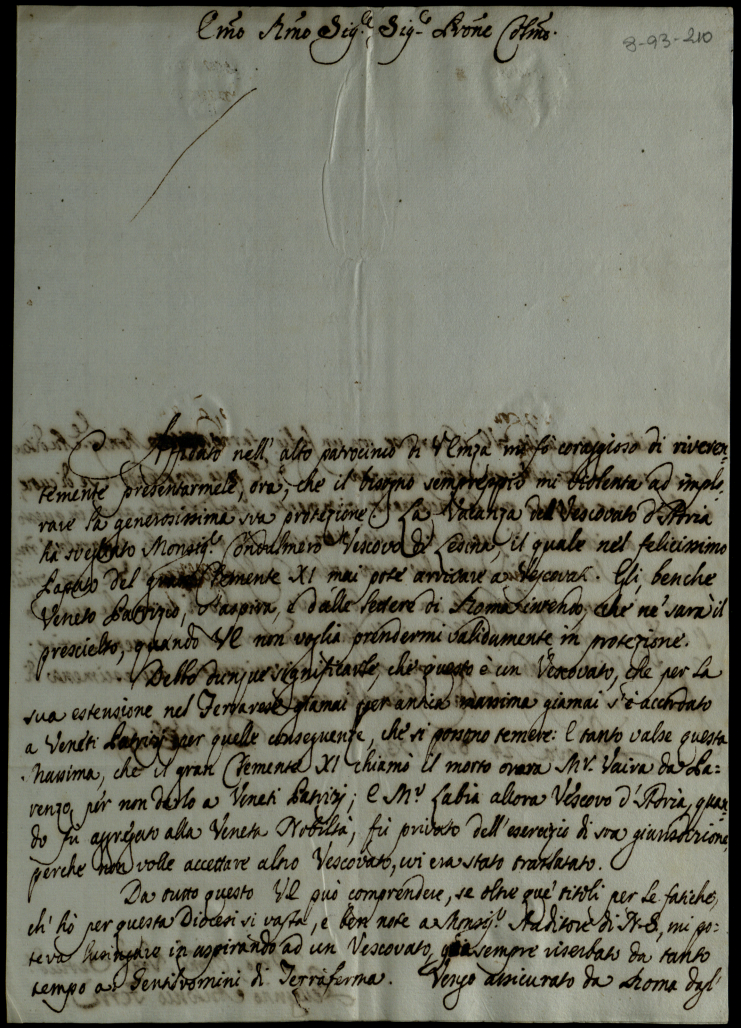 Emo Rmo Sig.r Sig.r Prone Colmo.
8-93-210
Affidato nell' alto patrocinio di VEmza mi fò coraggioso di riveren-
temente presentarmele, ora, che il bisogno sempreppiù mi violenta ad implo-
rare la generosissima sua protezione. La Vacanza del Vescovato d'Adria
hà svegliato Monsig.r Condulmero Vescovo di Lesina, il quale nel felicissimo
Papato del gran Clemente XI mai potè arrivare a Vescovati. Egli benche
Veneto Patrizio, v'aspira, e dalle lettere di Roma intendo, che ne sarà il
prescielto, quando VE non voglia prendermi validamente in protezione.
Debbo dunque significarle, che questo è un Vescovato, che per la
sua estensione nel Ferrarese giamai per antica massima giamai s'è accordato
a Veneti Patrizj per quelle conseguenze, che si possono temere: E tanto valse questa
Massima, che il gran Clemente XI chiamò il morto ora Mr. Vaira da Pa-
renzo per non darlo a Veneti Patrizj; E Mr. Labia allora Vescovo d'Adria, quan-
do fu aggregato alla Veneta Nobiltà, fù privato dell'esercizio di sua giurisdizione,
perche non volle accettare altro Vescovato, cui era stato translatato.
Da tutto questo VE può comprendere, se oltre que' titoli per le fatiche,
ch' hò per questa Diocesi si vasta, e ben note a Monsig.r Auditore di N.S., mi po-
teva lusingare in aspirando ad un Vescovato, sempre riserbato da tanto
tempo a Gentiluomini di Terraferma. Vengo assicurato da Roma dagl'